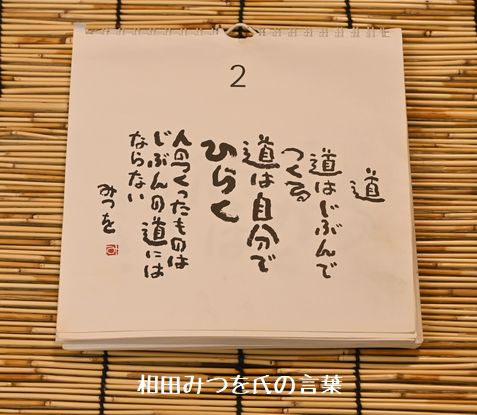 2
道
道はじぶんで
つくる
道は自分で
ひらく
人のつくったものは
じぶんの道には
ならない
みつを
相田みつを氏の言葉